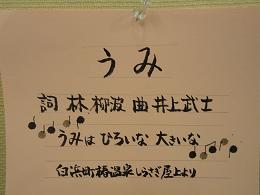 うみ
詞 林 柳波 曲 井上武士
うみは ひろいな 大きいな
白浜町椿温泉しらさぎ屋上より